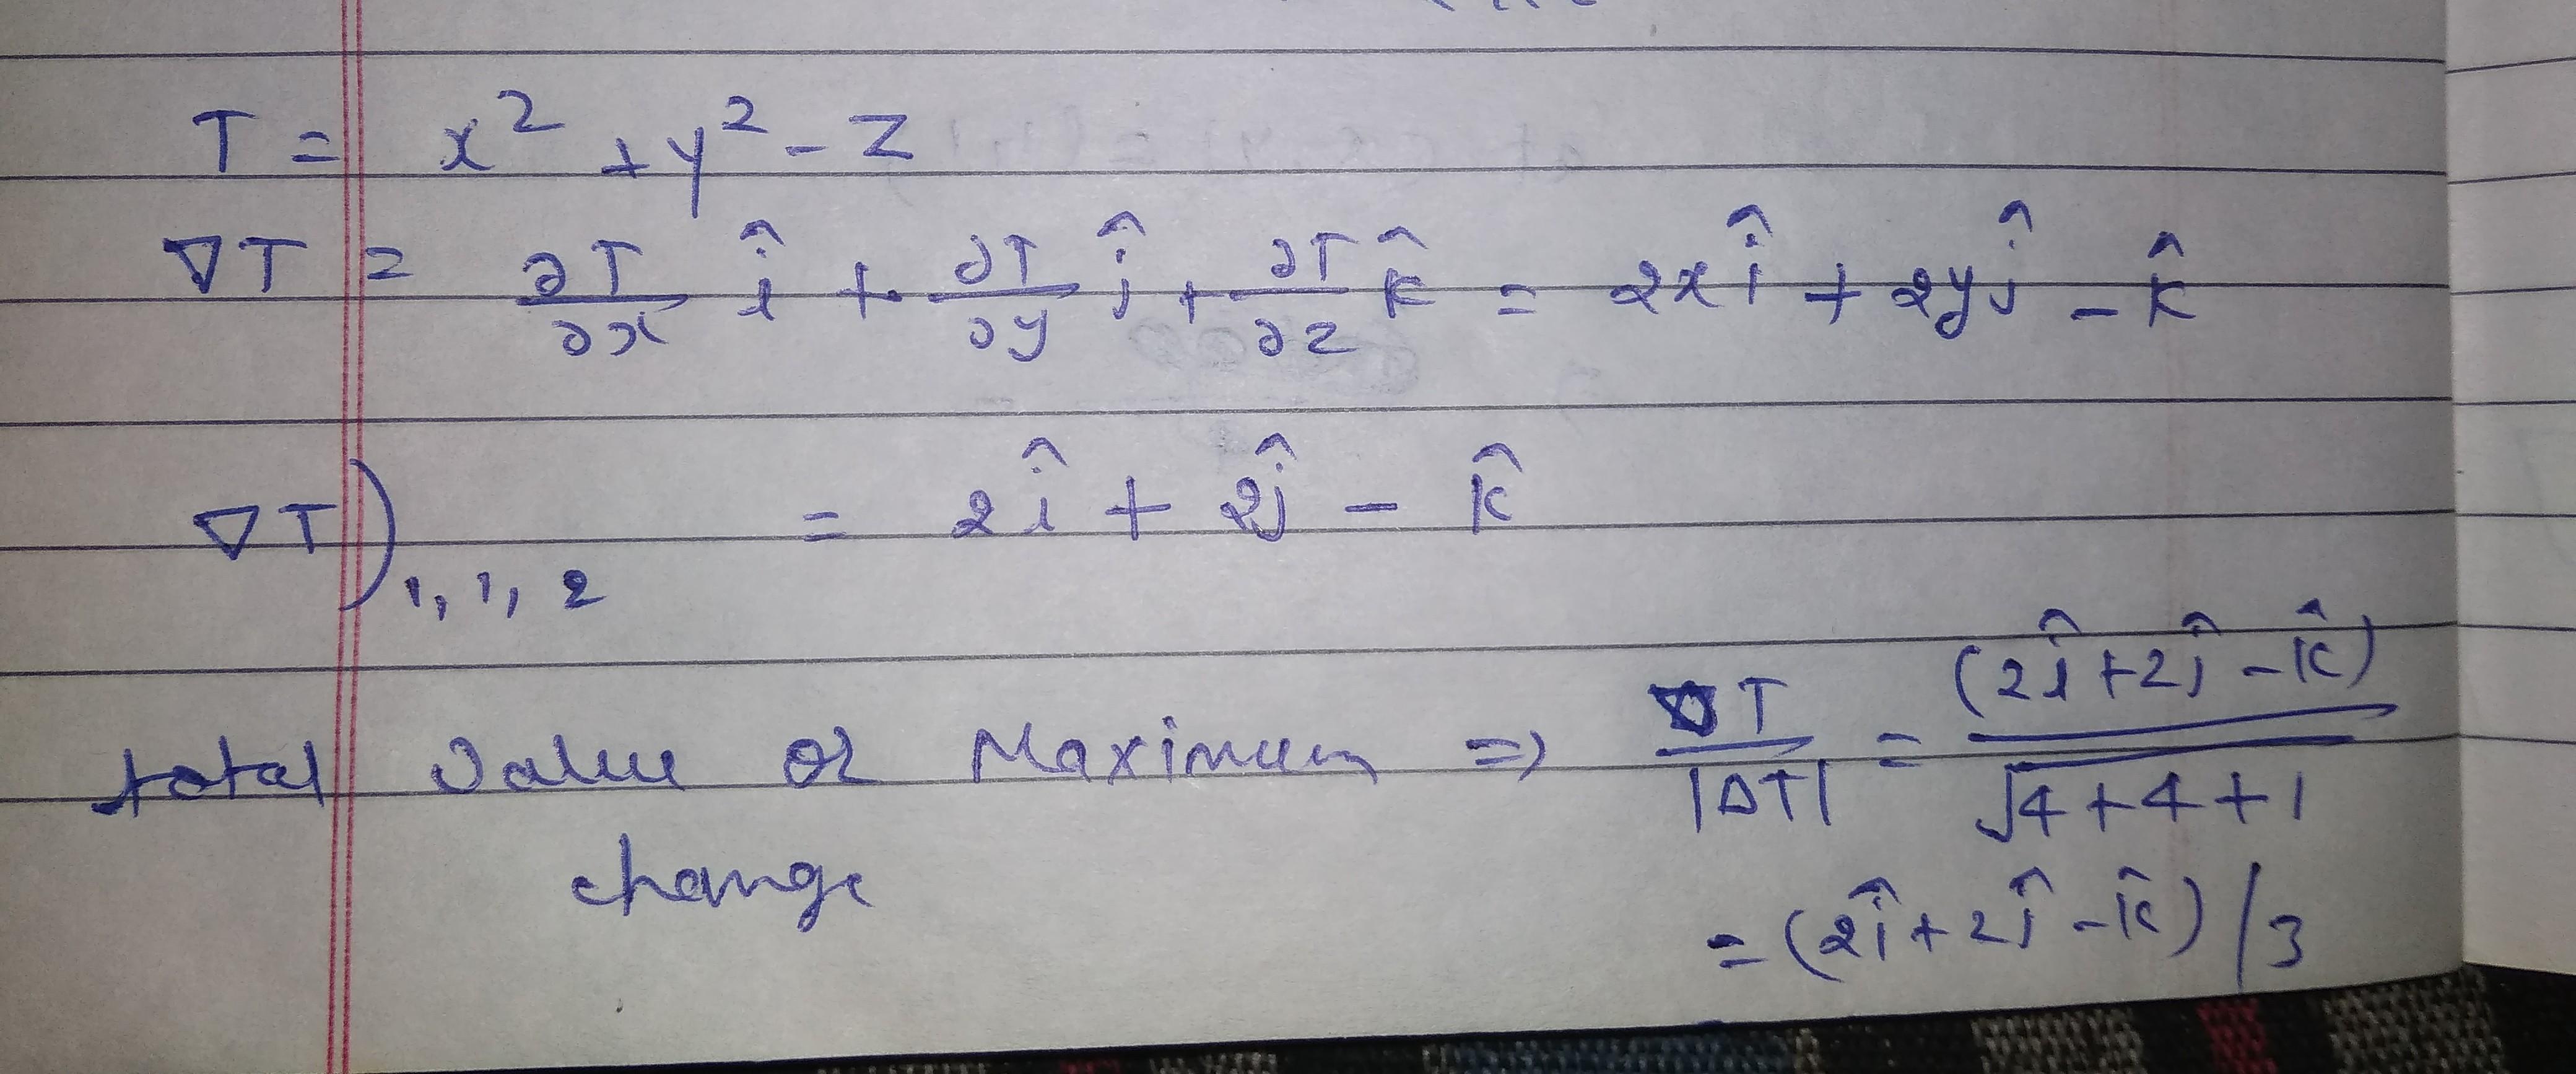 T = x² + y² - z
∇T = ∂T/∂x î + ∂T/∂y ĵ + ∂T/∂z k̂ = 2x î + 2y ĵ - k̂
∇T)₁,₁,₂ = 2î + 2ĵ - k̂
total value or Maximum change => ∇T/|ΔT| = (2î + 2ĵ - k̂)/√4+4+1
= (2î + 2ĵ - k̂)/3